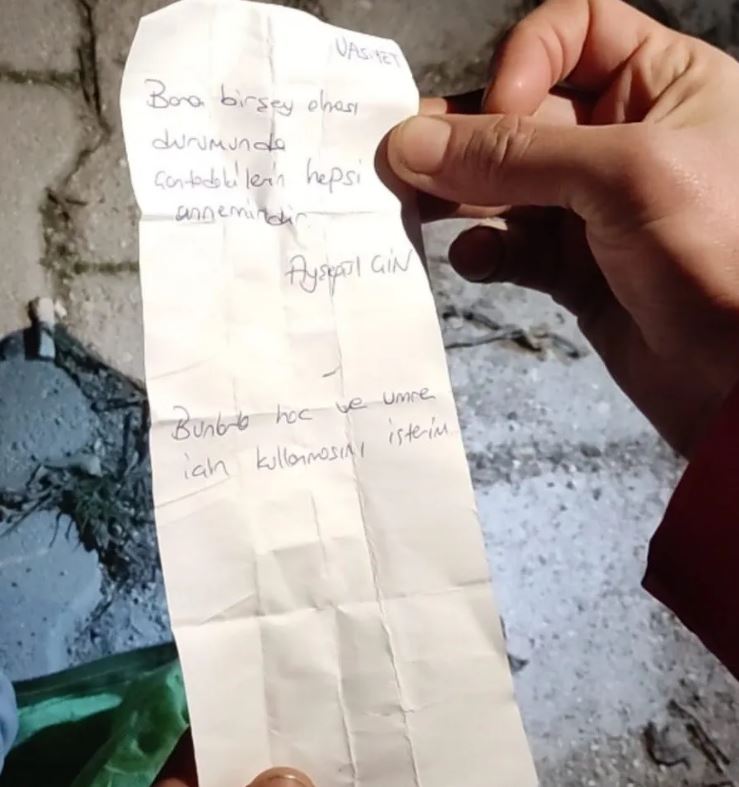 VASiYET
Bana birşey olması
durumunda
çantadakilerin hepsi
annemindir.
Ayşegül GiN
Bunlarla hac ve umre
için kullanmasını isterim